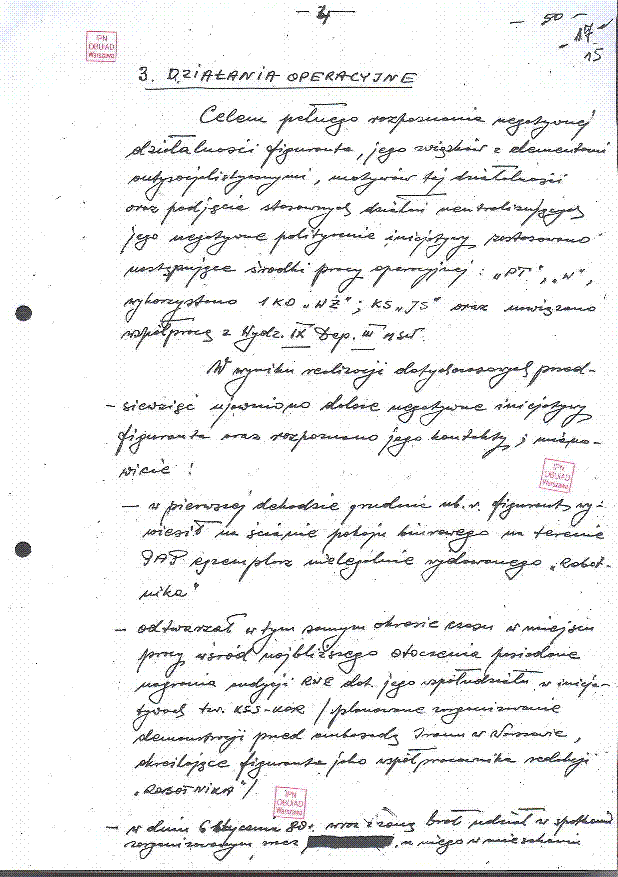 - 4 -
- 50 -
- 17 -
15
IPN
OBUiAD
Warszawa
3. DZIAŁANIA OPERACYJNE
Celem pełnego rozpoznania negatywnej
działalności figuranta, jego związków z elementami
antysocjalistycznymi, motywów tej działalności
oraz podjęcie stosownych działań neutralizujących
jego negatywne politycznie inicjatywy zastosowano
następujące środki pracy operacyjnej: "PT", "W",
wykorzystano 1 KO "WŻ"; KS "JS" oraz nawiązano
współpracę z Wydz. IX Dep. III MSW.
W wyniku realizacji dotychczasowych przed-
- sięwzięć ujawniono dalsze negatywne inicjatywy
figuranta oraz rozpoznano jego kontakty, i miano-
wicie:
IPN
OBUiAD
Warszawa
- w pierwszej dekadzie grudnia ub. r. figurant wy-
wiesił na ścianie pokoju biurowego na terenie
egzemplarz nielegalnie wydawanego "Robot-
nika"
- odtwarzał w tym samym okresie czasu w miejscu
pracy wśród najbliższego otoczenia posiadane
nagrania audycji RWE dot. jego współudziału w inicja-
tywach tzw. KSS-KOR /planowane zorganizowanie
demonstracji przed ambasadą Iranu w Warszawie,
określające figuranta jako współpracownika redakcji
"ROBOTNIKA"/
IPN
OBUiAD
Warszawa
- w dniu 6 stycznia 80 r. wraz z żoną brał udział w spotkaniu
zorganizowanym przez u niego w mieszkaniu